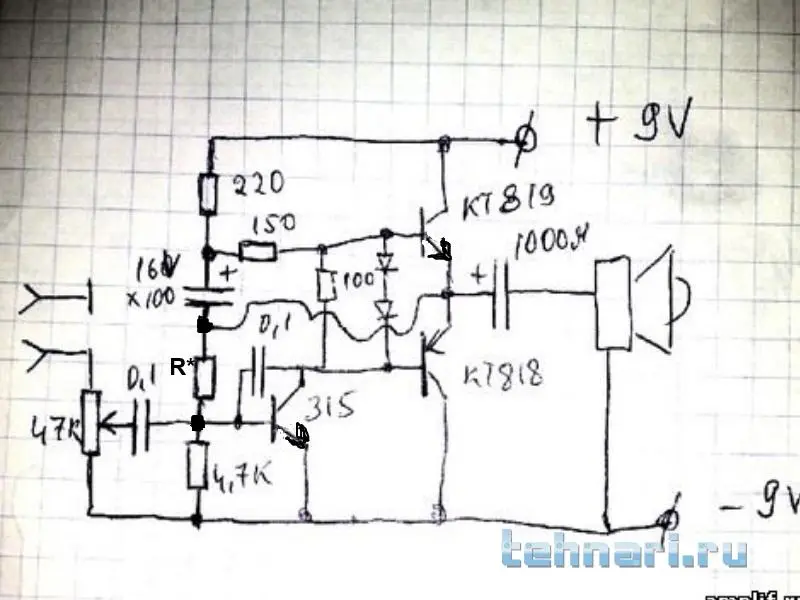 + 9V
220
KT819
150
1000м
160V
x100
+
100
+
0,1
R*
0,1
315
KT818
47K
4,7K
- 9V
tehnari.ru